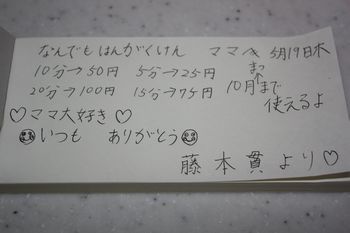 なんでもはんがくけん ママへ 5月19日木
10分→50円 5分→25円
20分→100円 15分→75円
10月まで
使えるよ
♡ママ大好き♡
いつも ありがとう
藤本貫より♡